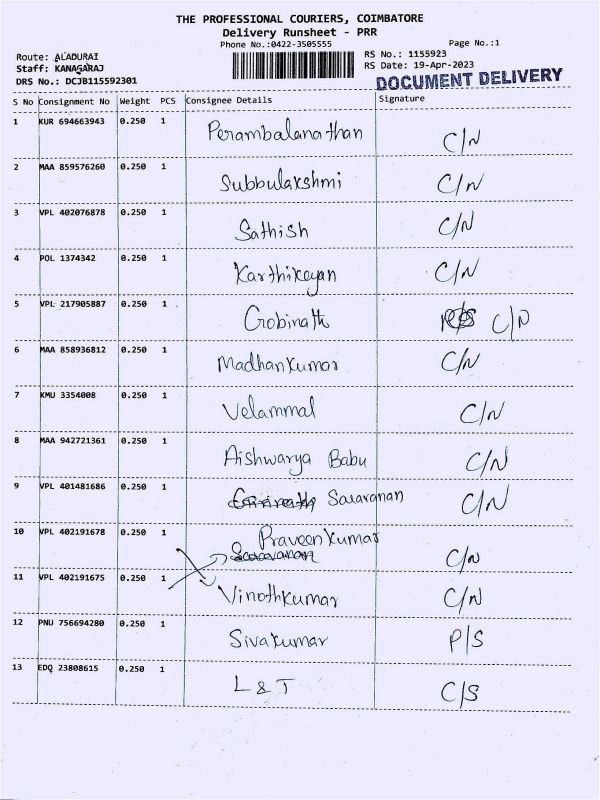 THE PROFESSIONAL COURIERS, COIMBATORE
Delivery Runsheet - PRR
Phone No.:0422-3505555 Page No.:1
Route: ALADURAI RS No.: 1155923
Staff: KANAGARAJ RS Date: 19-Apr-2023
DRS No.: DCJB115592301 DOCUMENT DELIVERY
S No Consignment No Weight PCS Consignee Details Signature
1 KUR 694663943 0.250 1 Perambalanathan C/N
2 MAA 859576260 0.250 1 Subbulakshmi C/N
3 VPL 402076878 0.250 1 Sathish C/N
4 POL 1374342 0.250 1 Karthikeyan C/N
5 VPL 217905887 0.250 1 Gobinath C/N
6 MAA 858936812 0.250 1 Madhankumar C/N
7 KMU 3354008 0.250 1 Velammal C/N
8 MAA 942721361 0.250 1 Aishwarya Babu C/N
9 VPL 401481686 0.250 1 Saravanan C/N
10 VPL 402191678 0.250 1 Praveenkumar
Saravanan C/N
11 VPL 402191675 0.250 1 Vinothkumar C/N
12 PNU 756694280 0.250 1 Sivakumar P/S
13 EDQ 23808615 0.250 1 L & T C/S